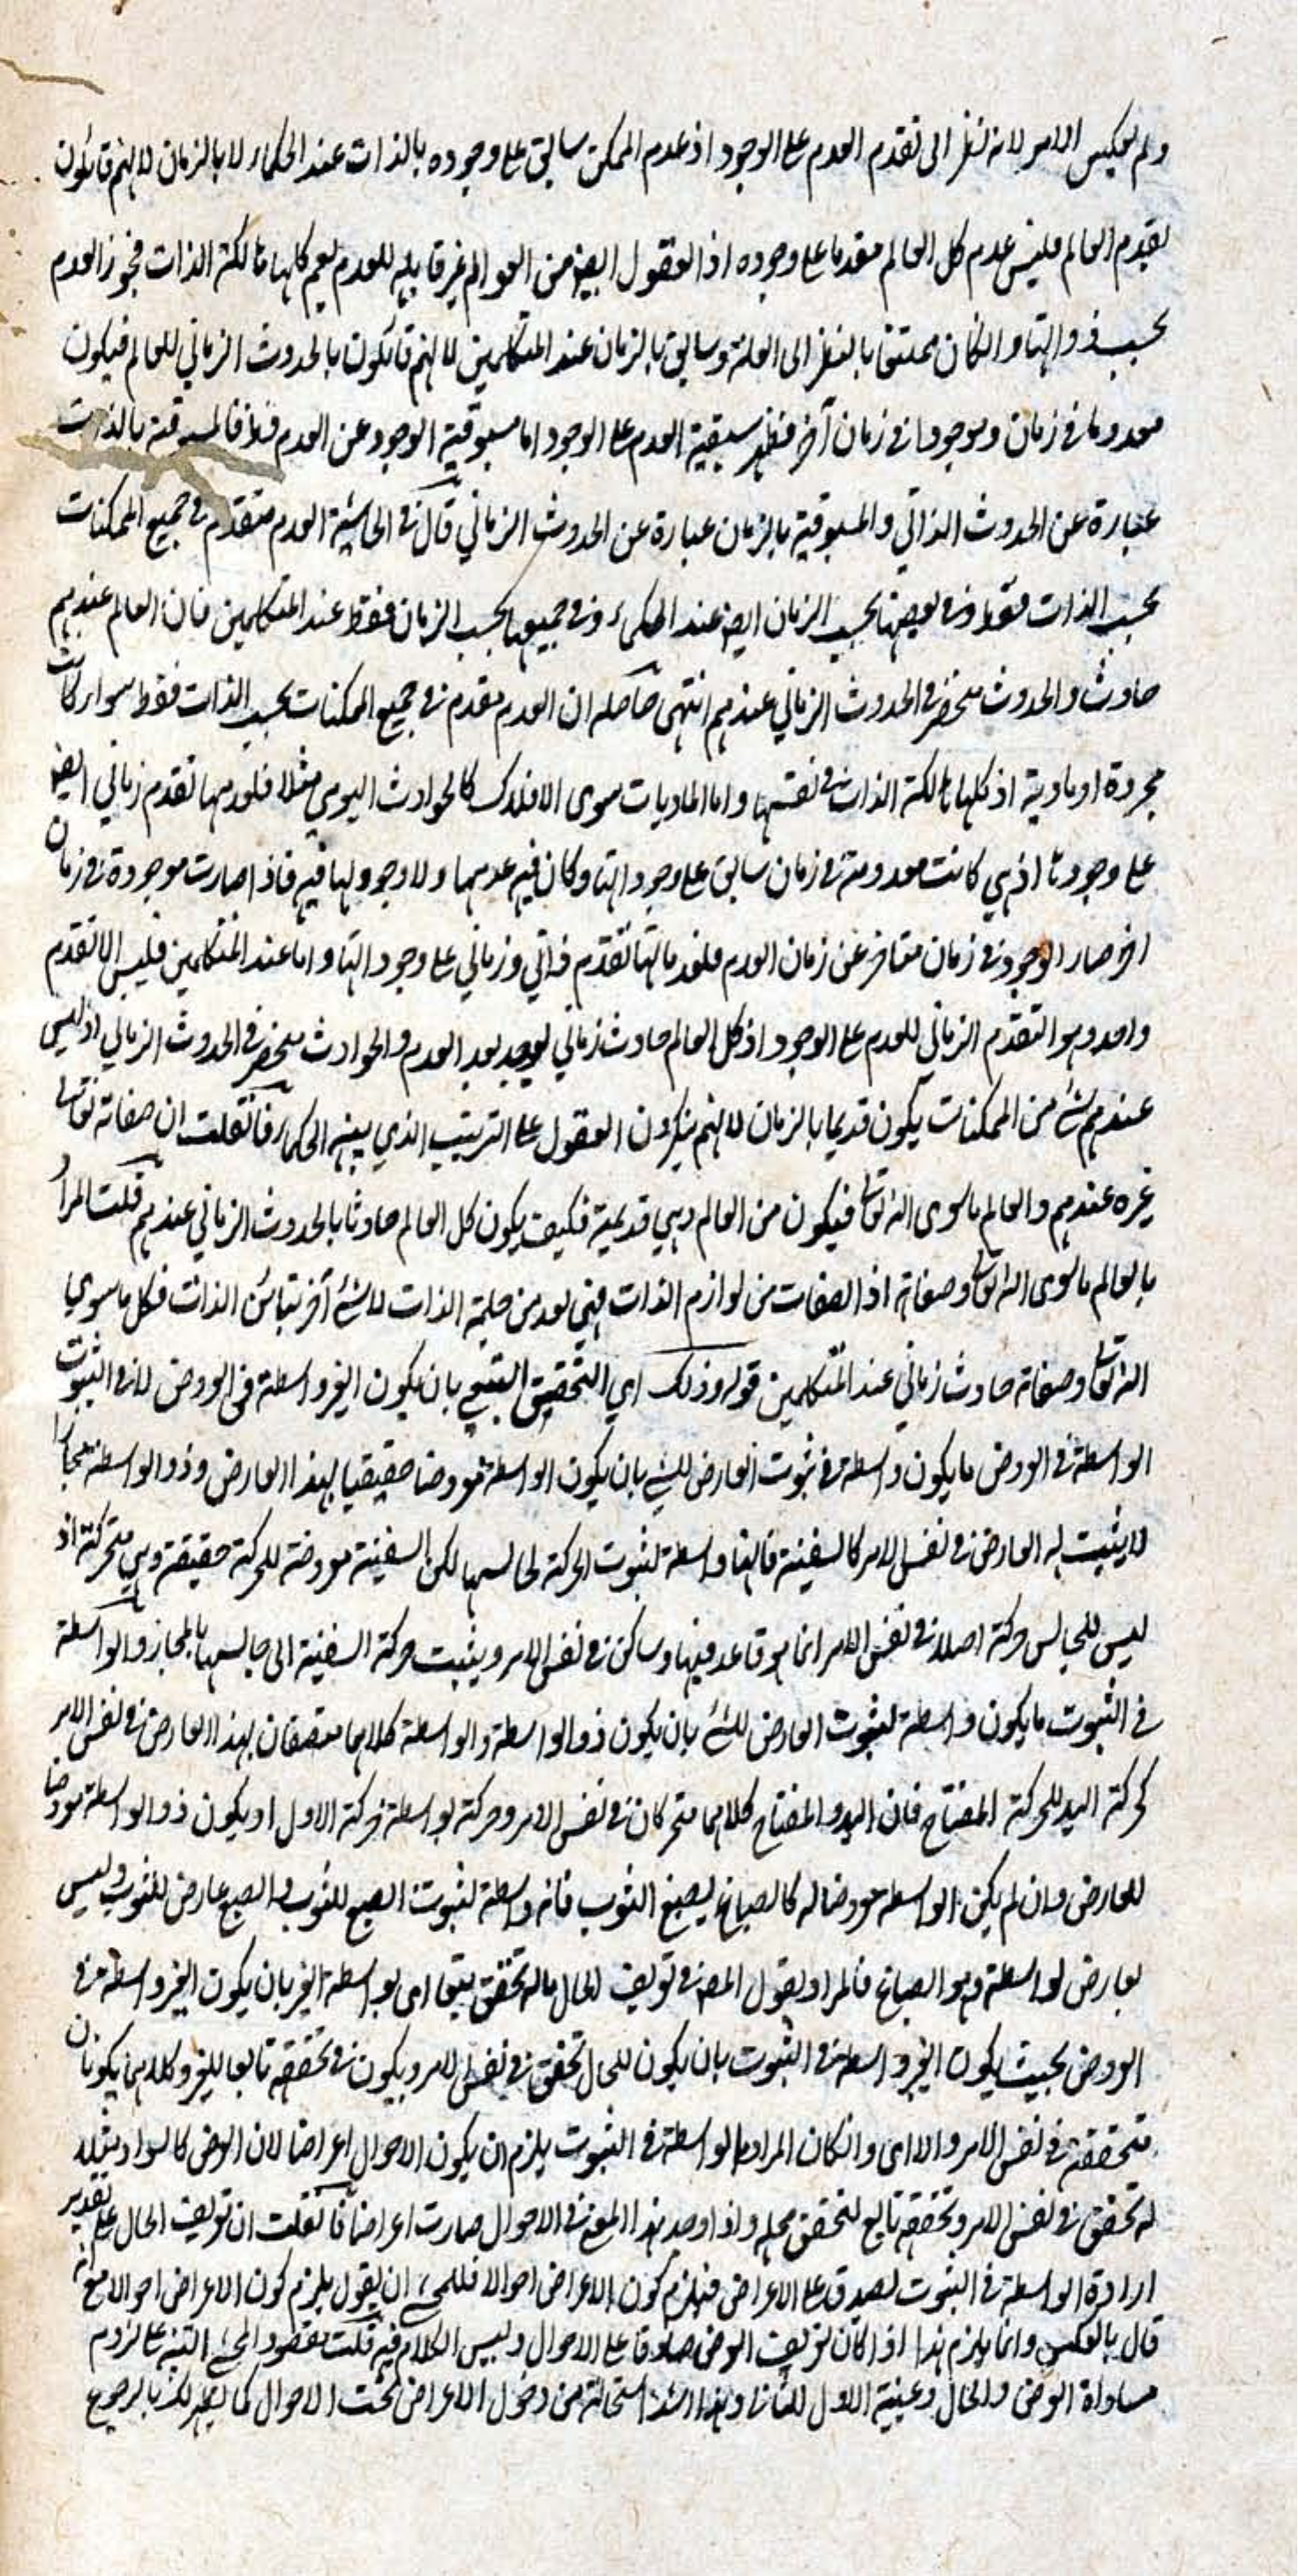 ولم يعكس الامر لانه نظر الى تقدم العدم على الوجود اذ عدم الممكن سابق على وجوده بالذات عند الحكماء لا بالزمان لانهم قائلون
بقدم العالم فليس عدم كل العالم مقدما على وجوده اذ العقول ايضا من العوالم غير قابلة للعدم نعم كلها هالكة الذات فيجوز العدم
بحسب ذواتها وان كان ممتنعا بالنظر الى العلة وسابق بالزمان عند المتكلمين لانهم قائلون بالحدوث الزماني للعالم فيكون
معدوما في زمان وموجودا في زمان آخر فظهر سبقية العدم على الوجود اما مسبوقية الوجود عن العدم فلا فالمسبوقية بالذات
عبارة عن الحدوث الذاتي والمسبوقية بالزمان عبارة عن الحدوث الزماني قال في الحاشية العدم متقدم في جميع الممكنات
بحسب الذات فقط وفي بعضها بحسب الزمان ايضا عند الحكماء وفي جميعها بحسب الزمان فقط عند المتكلمين فان العالم عندهم
حادث والحدوث منحصر في الحدوث الزماني عندهم انتهى حاصله ان العدم مقدم في جميع الممكنات بحسب الذات فقط سواء كانت
مجردة او مادية اذ كلها هالكة الذات في نفسها واما الماديات سوى الافلاك كالحوادث اليومي مثلا فلعدمها تقدم زماني ايضا
على وجودها اذ هي كانت معدومة في زمان سابق على وجوداتها وكان فيه عدمها ولا وجود لها فيه فاذا صارت موجودة في زمان
آخر صار الوجود في زمان متاخر عن زمان العدم فلعدماتها تقدم ذاتي وزماني على وجوداتها واما عند المتكلمين فليس الا تقدم
واحد وهو التقدم الزماني للعدم على الوجود اذ كل العالم حادث زماني يوجد بعد العدم والحوادث منحصر في الحدوث الزماني اذ ليس
عندهم شئ من الممكنات يكون قديما بالزمان لانهم ينكرون العقول على الترتيب الذي بينه الحكماء فان قلت ان صفاته تعالى
غيره عندهم والعالم ما سوى الله تعالى فيكون من العالم وهي قديمة فكيف يكون كل العالم حادثا بالحدوث الزماني عندهم قلت المراد
بالعالم ما سوى الله تعالى وصفاته اذ الصفات من لوازم الذات فهي تعد من جملة الذات لا شئ آخر تباين الذات فكل ما سوى
الله تعالى وصفاته حادث زماني عند المتكلمين قوله وذلك اي التحقق التبعي بان يكون الغير واسطة في العروض لا في الثبوت
الواسطة في العروض ما يكون واسطة في ثبوت العارض للشئ بان يكون الواسطة معروضا حقيقيا لهذا العارض وذو الواسطة مجازا
لا يثبت له العارض في نفس الامر كالسفينة فانها واسطة لثبوت الحركة لجالسها لكن السفينة معروضة للحركة حقيقة وهي متحركة اذ
ليس للجالس حركة اصلا في نفس الامر انما هو قاعد فيها وساكن في نفس الامر وينسب حركة السفينة الى جالسها بالمجاز والواسطة
في الثبوت ما يكون واسطة لثبوت العارض للشئ بان يكون ذو الواسطة والواسطة كلاهما متصفان بهذا العارض في نفس الامر
كحركة اليد للحركة المفتاح فان اليد والمفتاح كلاهما متحركان في نفس الامر وحركته بواسطة حركة الاول او يكون ذو الواسطة معروضا
للعارض وان لم يكن الواسطة معروضا له كالصباغ يصبغ الثوب فانه واسطة لثبوت الصبغ للثوب والصبغ عارض للثوب وليس
بعارض لواسطة وهو الصباغ فالمراد بقول المصنف في تعريف الحال ماله تحقق تبعا اي بواسطة الغير بان يكون الغير واسطة في
العروض بحيث يكون الغير واسطة في الثبوت بان يكون للحال تحقق في نفس الامر ويكون في تحققه تابعا للغير وكلاهما يكونان
متحققة في نفس الامر والا اي وان كان المراد بالواسطة في الثبوت يلزم ان يكون الاحوال اعراضا لان العرض كالسواد مثلا
له تحقق في نفس الامر وتحققه تابع لتحقق محله واذا وجد هذا المعنى في الاحوال صارت اعراضا فان قلت ان تعريف الحال على تقدير
ارادة الواسطة في الثبوت يصدق على الاعراض فيلزم كون الاعراض احوالا فللمحشي ان يقول يلزم كون الاعراض احوالا مع انه
قال بالعكس وانما يلزم هذا اذا كان تعريف العرض صادقا على الاحوال وليس الكلام فيه قلت مقصود المحشي التنبيه على لزوم
مساواة العرض والحال وعينية الاول للثاني وهذا اشد استحالة من دخول الاعراض تحت الاحوال كما يظهر لك بالرجوع